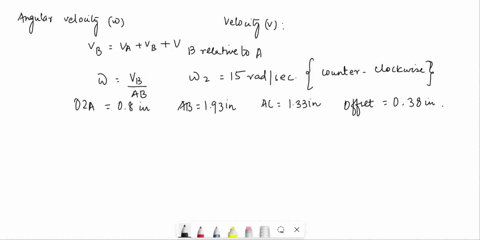 Angular velocity (ω) Velocity (v) :
V_B = V_A + V_B + V B relative to A
ω = V_B / AB ω_2 = 15 rad/sec. { counter-clockwise }
O2A = 0.8 in AB = 1.93 in AC = 1.33 in Offset = 0.38 in.